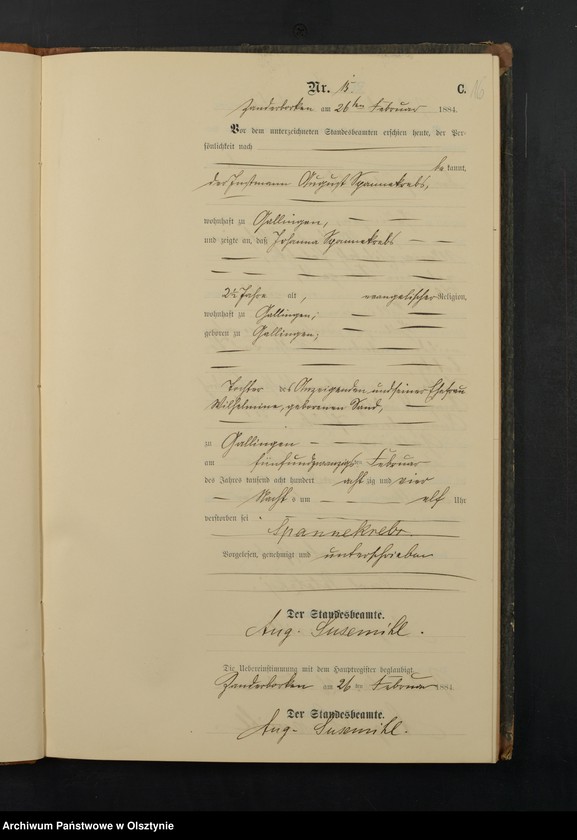 Nr. 15. C. 16
Zanderborken am 26ten Februar 1884.
Vor dem unterzeichneten Standesbeamten erschien heute, der Per-
sönlichkeit nach
be kannt,
der Instmann August Spannekrebs,
wohnhaft zu Gallingen,
und zeigte an, daß Johanna Spannekrebs
2½ Jahre alt, evangelischer Religion,
wohnhaft zu Gallingen;
geboren zu Gallingen;
Tochter des Anzeigenden und seiner Ehefrau
Wilhelmine, geborenen Sand,
zu Gallingen
am fünfundzwanzigsten Februar
des Jahres tausend acht hundert acht zig und vier
Nacht s um elf Uhr
verstorben sei
Spannekrebs.
Vorgelesen, genehmigt und unterschrieben
Der Standesbeamte.
Aug. Susemihl.
Die Uebereinstimmung mit dem Hauptregister beglaubigt
Zanderborken am 26ten Februar 1884
Der Standesbeamte.
Aug. Susemihl.
Archiwum Państwowe w Olsztynie